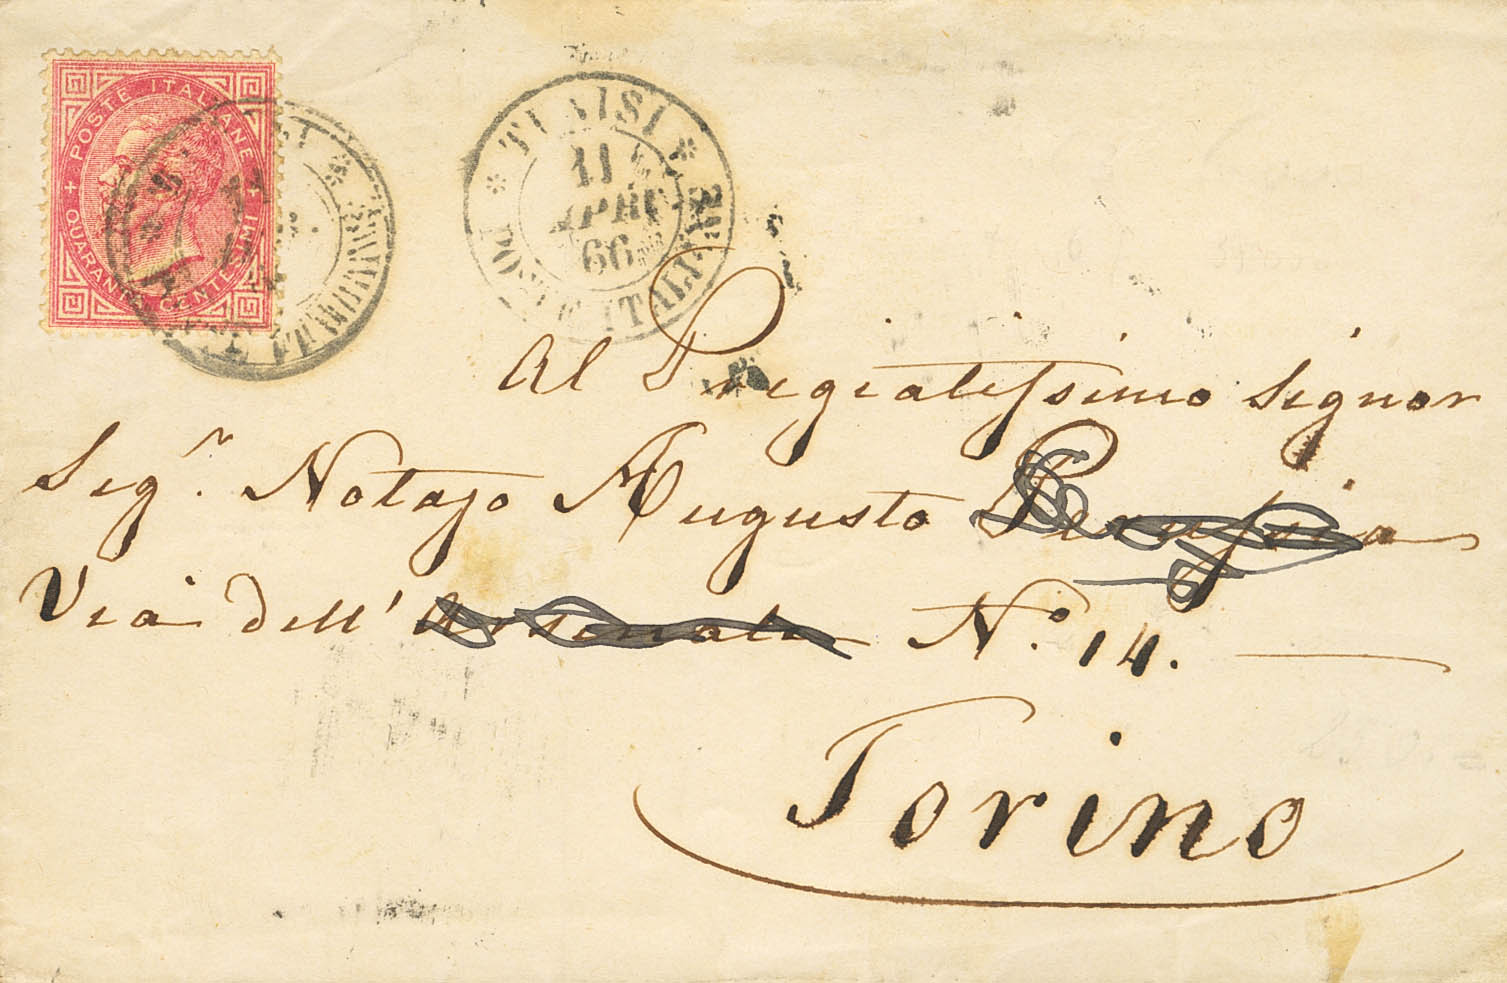 + POSTE ITALIANE +
QUARANTA CENTESIMI
* TUNISI *
11
APR
66
POSTE ITALIANE
Al Pregiatissimo Signor
Sigr. Notajo Augusto
Via dell' Arsenale No. 14.
Torino